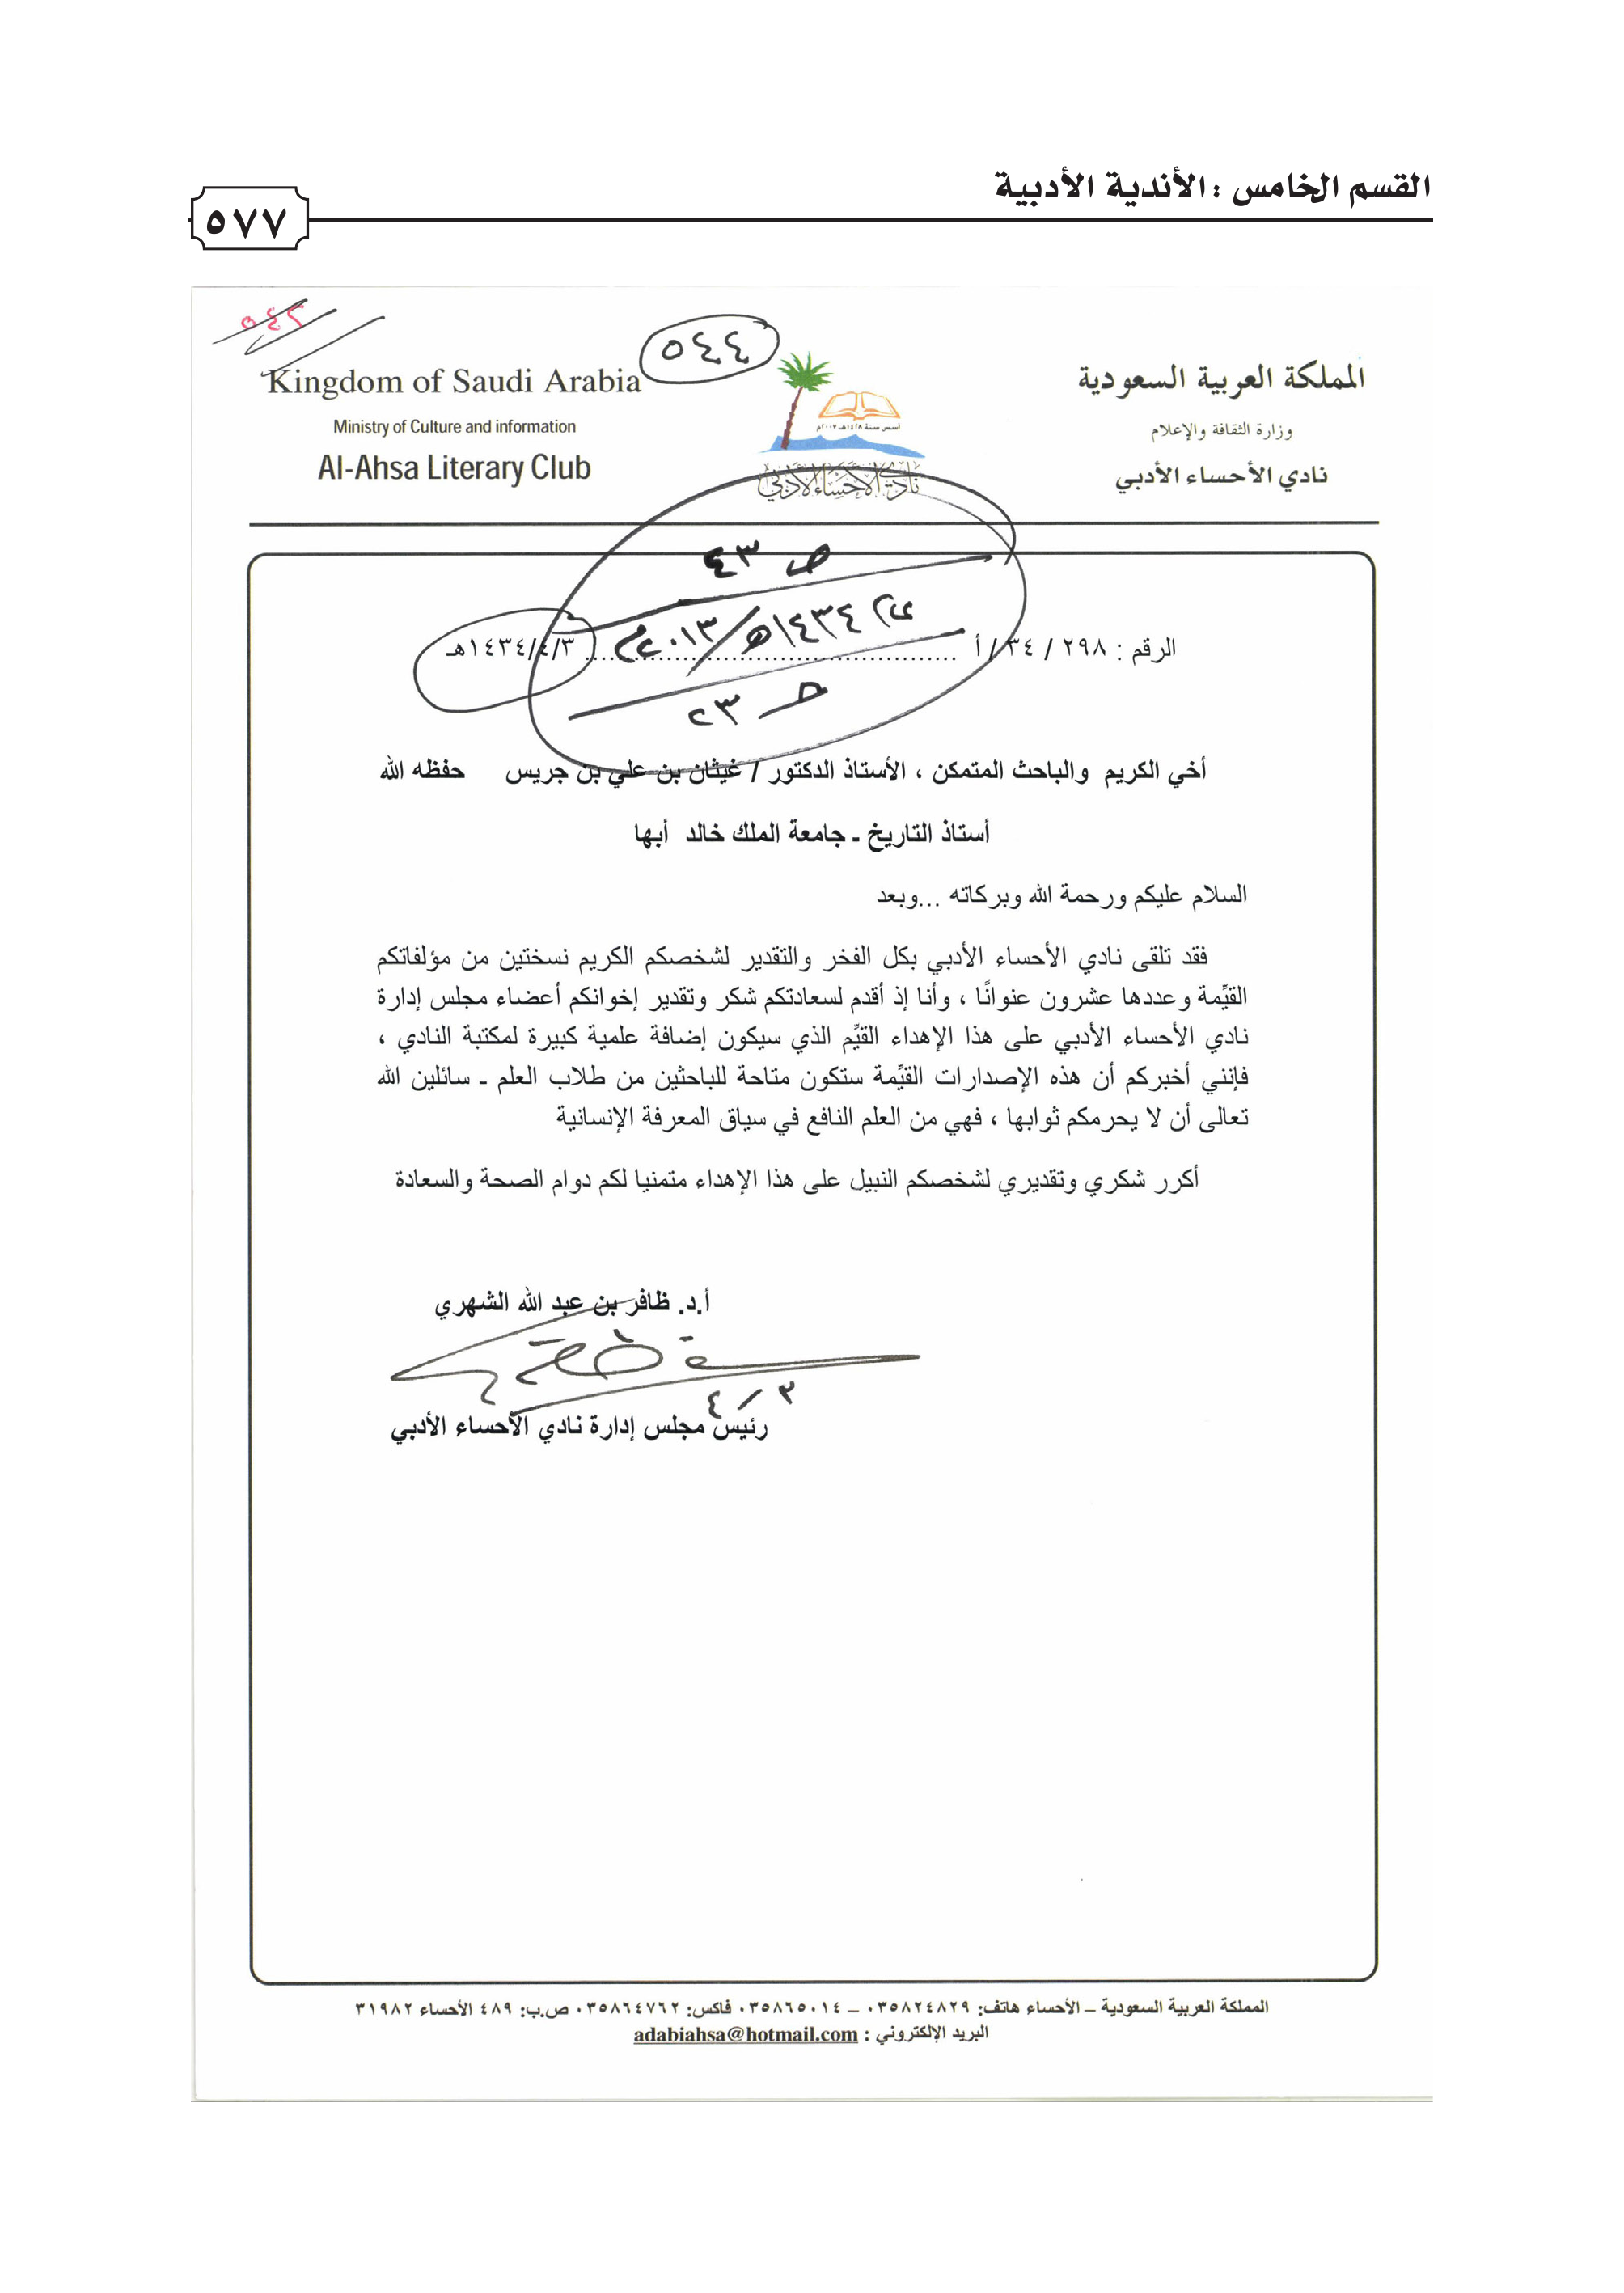 القسم الخامس : الأندية الأدبية
٥٧٧
٥٤٤
المملكة العربية السعودية
وزارة الثقافة والإعلام
نادي الأحساء الأدبي
Kingdom of Saudi Arabia
Ministry of Culture and information
Al-Ahsa Literary Club
أسس سنة ١٤٢٨هـ ٢٠٠٧م
نادي الأحساء الأدبي
ص ٤٣
١٤٣٤هـ/٢٠١٣م
حـ ٢٣
الرقم : ٢٩٨ / ٣٤ / أ ١٤٣٤/٤/٣هـ
أخي الكريم والباحث المتمكن ، الأستاذ الدكتور / غيثان بن علي بن جريس حفظه الله
أستاذ التاريخ ـ جامعة الملك خالد أبها
السلام عليكم ورحمة الله وبركاته ...وبعد
فقد تلقى نادي الأحساء الأدبي بكل الفخر والتقدير لشخصكم الكريم نسختين من مؤلفاتكم
القيِّمة وعددها عشرون عنوانًا ، وأنا إذ أقدم لسعادتكم شكر وتقدير إخوانكم أعضاء مجلس إدارة
نادي الأحساء الأدبي على هذا الإهداء القيِّم الذي سيكون إضافة علمية كبيرة لمكتبة النادي ،
فإنني أخبركم أن هذه الإصدارات القيِّمة ستكون متاحة للباحثين من طلاب العلم ـ سائلين الله
تعالى أن لا يحرمكم ثوابها ، فهي من العلم النافع في سياق المعرفة الإنسانية
أكرر شكري وتقديري لشخصكم النبيل على هذا الإهداء متمنيا لكم دوام الصحة والسعادة
أ.د. ظافر بن عبد الله الشهري
٣ / ٤
رئيس مجلس إدارة نادي الأحساء الأدبي
المملكة العربية السعودية – الأحساء هاتف: ٠٣٥٨٢٤٨٢٩ – ٠٣٥٨٦٥٠١٤ فاكس: ٠٣٥٨٦٤٧٦٢ ص.ب: ٤٨٩ الأحساء ٣١٩٨٢
البريد الإلكتروني : adabiahsa@hotmail.com